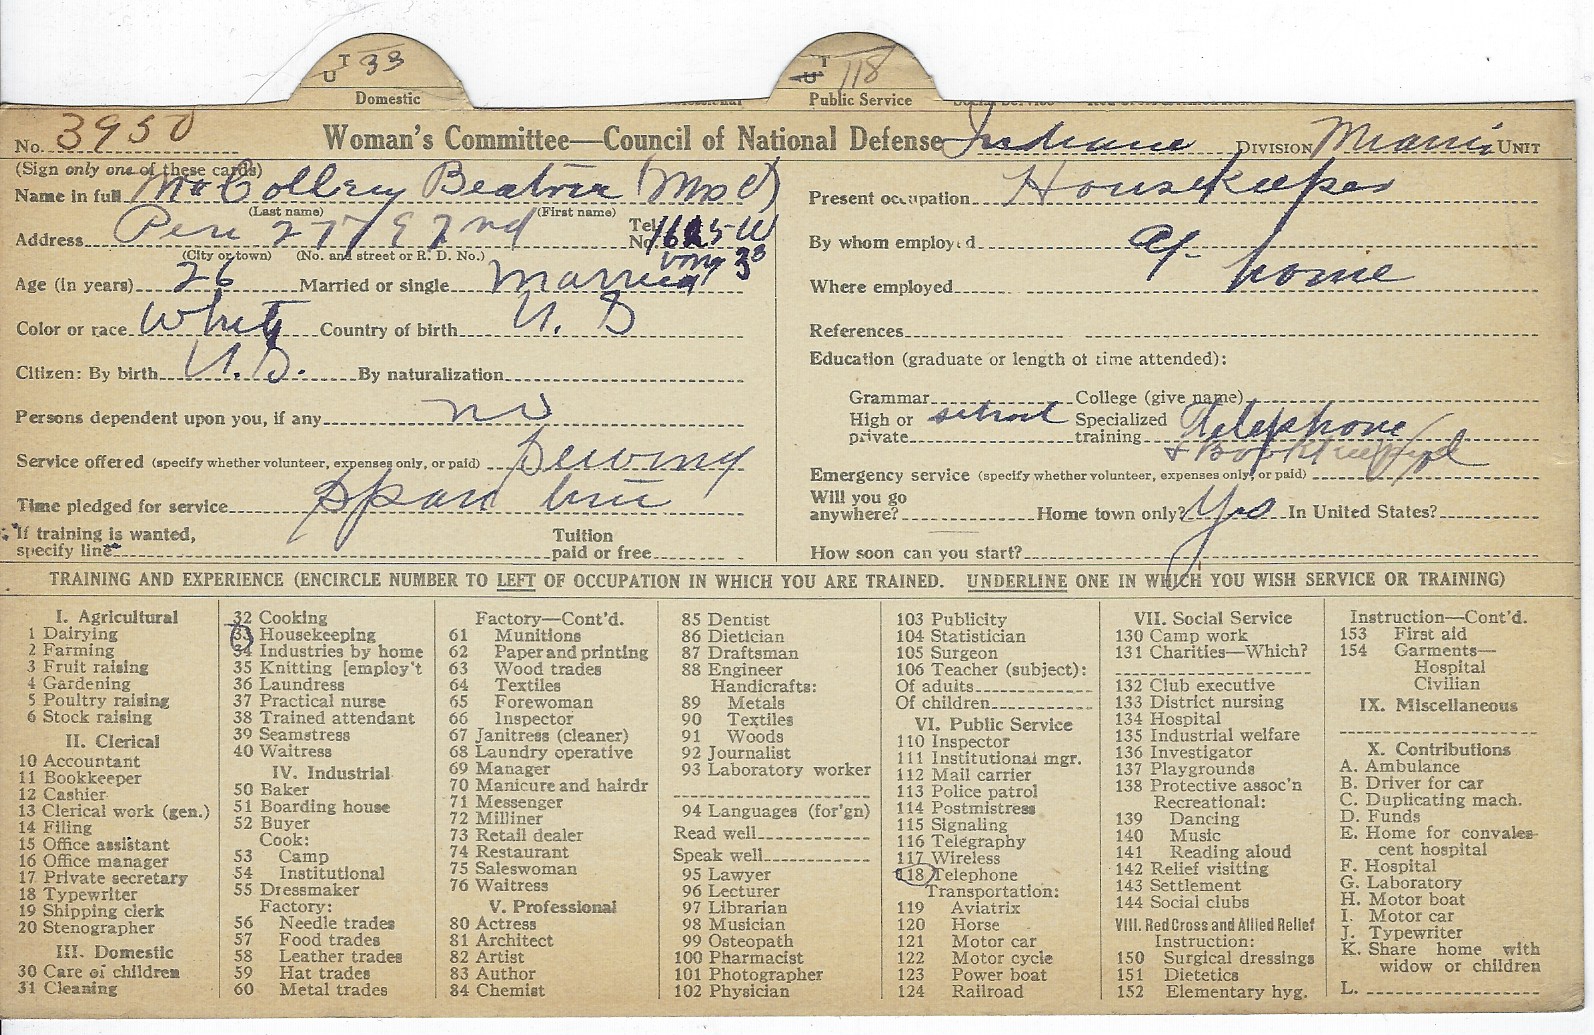 U T 33
U T 118
Domestic
Public Service
No. 3950
Woman's Committee—Council of National Defense Indiana DIVISION Miami UNIT
(Sign only one of these cards)
Name in full McColley Beatrice (Mrs C)
(Last name) (First name)
Address Peru 277 E 2nd Tel. No.
(City or town) (No. and street or R. D. No.)
Age (in years) 26 Married or single Married
Color or race White Country of birth U. S
Citizen: By birth U.S. By naturalization
Persons dependent upon you, if any no
Service offered (specify whether volunteer, expenses only, or paid) Sewing
Time pledged for service Spare time
If training is wanted, specify line Tuition paid or free
Present occupation Housekeeper
By whom employed at
Where employed home
References
Education (graduate or length of time attended):
Grammar College (give name)
High or private school Specialized training Telephone
& Bookkeeping
Emergency service (specify whether volunteer, expenses only, or paid)
Will you go anywhere? Home town only? Yes In United States?
How soon can you start?
TRAINING AND EXPERIENCE (ENCIRCLE NUMBER TO LEFT OF OCCUPATION IN WHICH YOU ARE TRAINED. UNDERLINE ONE IN WHICH YOU WISH SERVICE OR TRAINING)
I. Agricultural
1 Dairying
2 Farming
3 Fruit raising
4 Gardening
5 Poultry raising
6 Stock raising
II. Clerical
10 Accountant
11 Bookkeeper
12 Cashier
13 Clerical work (gen.)
14 Filing
15 Office assistant
16 Office manager
17 Private secretary
18 Typewriter
19 Shipping clerk
20 Stenographer
III. Domestic
30 Care of children
31 Cleaning
32 Cooking
33 Housekeeping
34 Industries by home
35 Knitting [employ't
36 Laundress
37 Practical nurse
38 Trained attendant
39 Seamstress
40 Waitress
IV. Industrial
50 Baker
51 Boarding house
52 Buyer
Cook:
53 Camp
54 Institutional
55 Dressmaker
Factory:
56 Needle trades
57 Food trades
58 Leather trades
59 Hat trades
60 Metal trades
Factory—Cont'd.
61 Munitions
62 Paper and printing
63 Wood trades
64 Textiles
65 Forewoman
66 Inspector
67 Janitress (cleaner)
68 Laundry operative
69 Manager
70 Manicure and hairdr
71 Messenger
72 Milliner
73 Retail dealer
74 Restaurant
75 Saleswoman
76 Waitress
V. Professional
80 Actress
81 Architect
82 Artist
83 Author
84 Chemist
85 Dentist
86 Dietician
87 Draftsman
88 Engineer
Handicrafts:
89 Metals
90 Textiles
91 Woods
92 Journalist
93 Laboratory worker
94 Languages (for'gn)
Read well
Speak well
95 Lawyer
96 Lecturer
97 Librarian
98 Musician
99 Osteopath
100 Pharmacist
101 Photographer
102 Physician
103 Publicity
104 Statistician
105 Surgeon
106 Teacher (subject):
Of adults
Of children
VI. Public Service
110 Inspector
111 Institutional mgr.
112 Mail carrier
113 Police patrol
114 Postmistress
115 Signaling
116 Telegraphy
117 Wireless
118 Telephone
Transportation:
119 Aviatrix
120 Horse
121 Motor car
122 Motor cycle
123 Power boat
124 Railroad
VII. Social Service
130 Camp work
131 Charities—Which?
132 Club executive
133 District nursing
134 Hospital
135 Industrial welfare
136 Investigator
137 Playgrounds
138 Protective assoc'n
Recreational:
139 Dancing
140 Music
141 Reading aloud
142 Relief visiting
143 Settlement
144 Social clubs
VIII. Red Cross and Allied Relief
Instruction:
150 Surgical dressings
151 Dietetics
152 Elementary hyg.
Instruction—Cont'd.
153 First aid
154 Garments—
Hospital
Civilian
IX. Miscellaneous
X. Contributions
A. Ambulance
B. Driver for car
C. Duplicating mach.
D. Funds
E. Home for convales-
cent hospital
F. Hospital
G. Laboratory
H. Motor boat
I. Motor car
J. Typewriter
K. Share home with
widow or children
L.